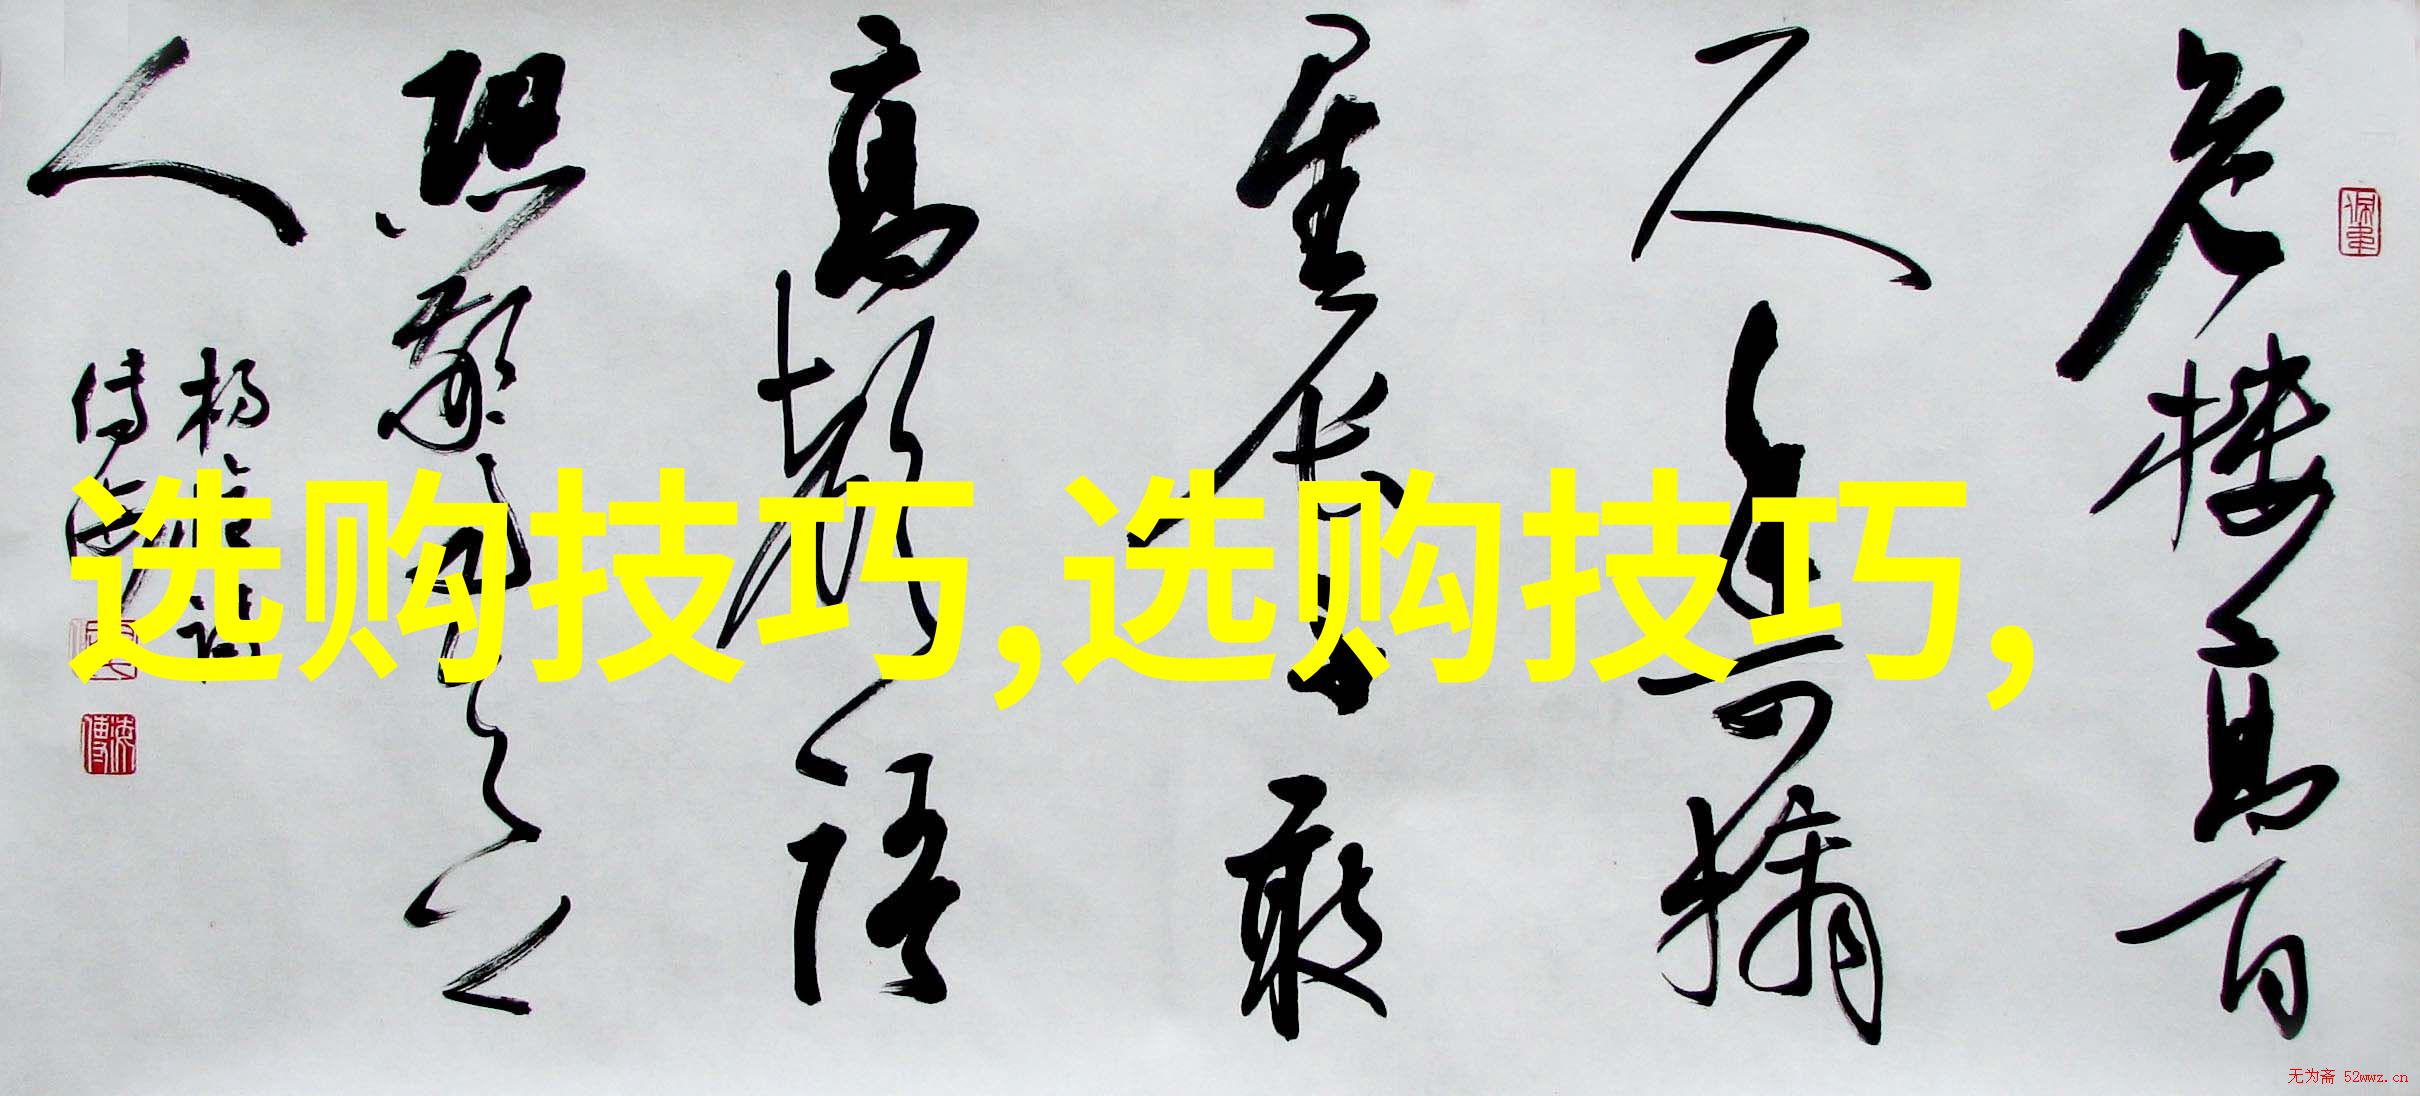 危楼高百
尺手可摘
星辰不敢
高聲語
恐驚天上
人
选购技巧,选购技巧,
无为斋 52wwz.cn